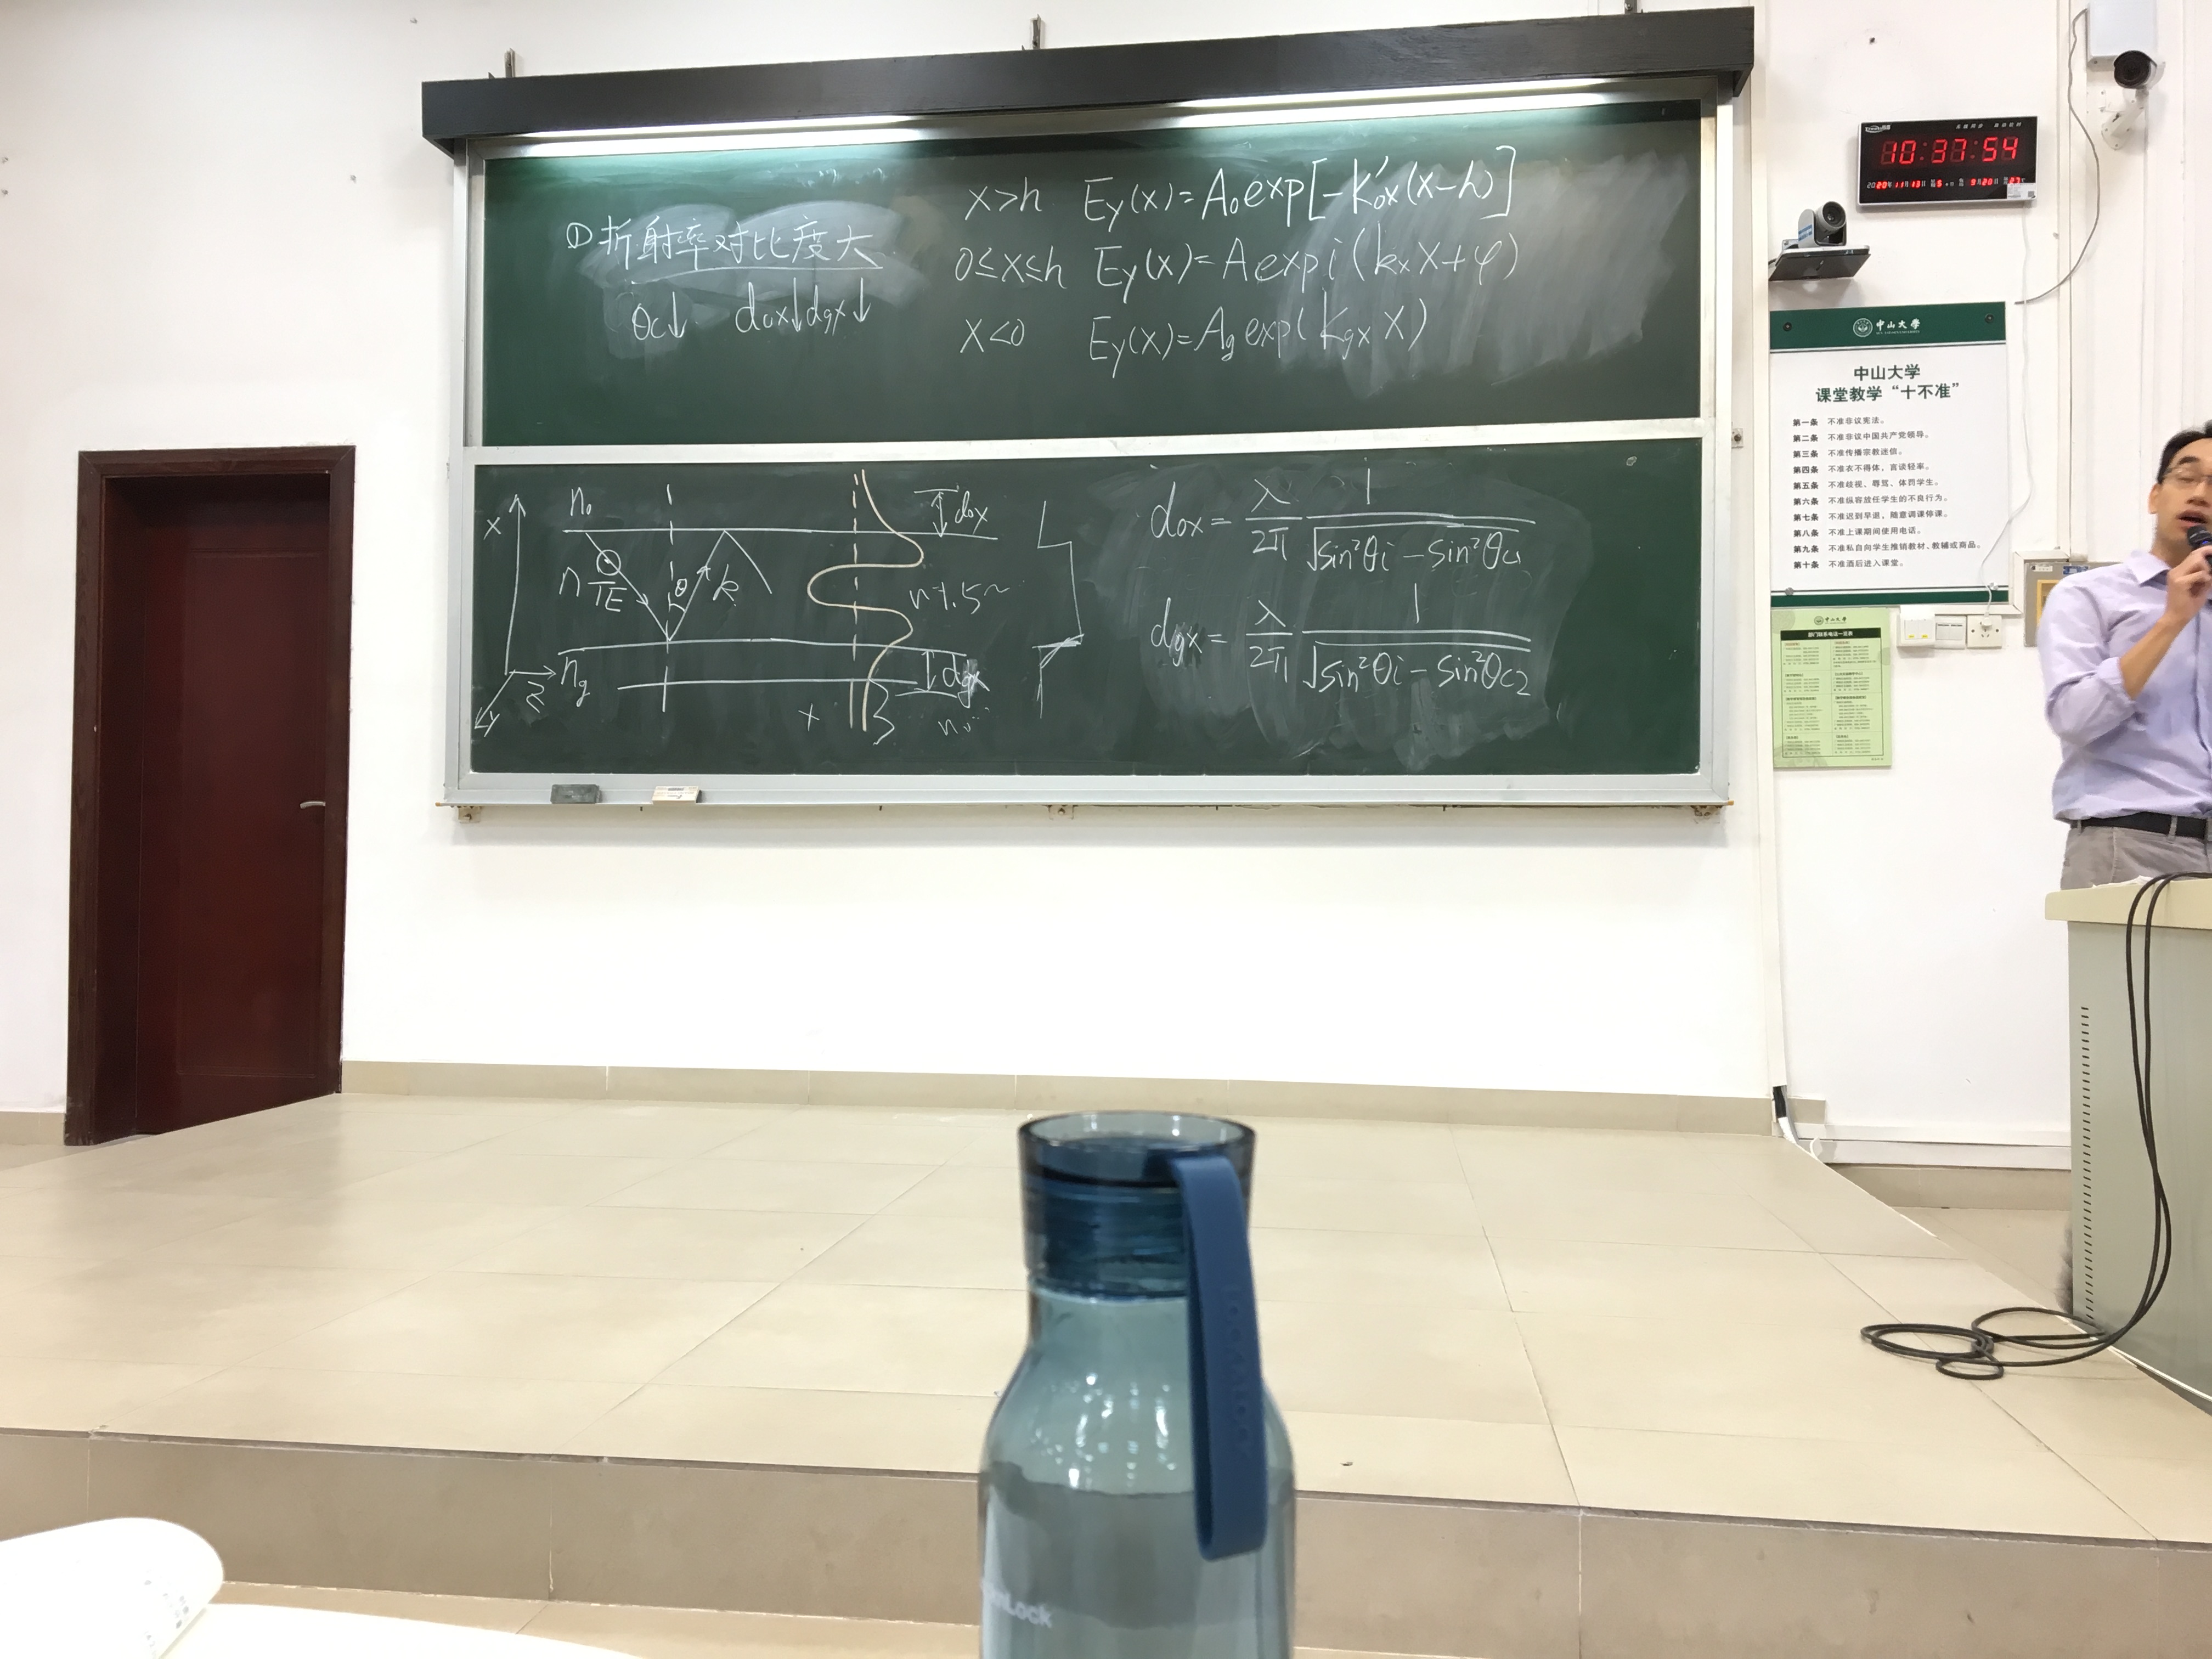 ① 折射率对比度大
θc↓ dox↓ dgx↓
x>h Ey(x)=A₀exp[-k'ox(x-h)]
0≤x≤h Ey(x)=A exp i(kxX+φ)
x<0 Ey(x)=Ag exp(kgx X)
x
n₀
n
TE
θ
k
dox
n
ng
dgx
z
y
+
n₀
dox = λ/2π 1/√(sin²θi - sin²θc1)
dgx = λ/2π 1/√(sin²θi - sin²θc2)
10:37:54
中山大学
中山大学
课堂教学“十不准”
第一条 不准非议宪法。
第二条 不准非议中国共产党领导。
第三条 不准传播宗教迷信。
第四条 不准衣不得体，言谈轻率。
第五条 不准歧视、辱骂、体罚学生。
第六条 不准纵容放任学生的不良行为。
第七条 不准迟到早退，随意调课停课。
第八条 不准上课期间使用电话。
第九条 不准私自向学生推销教材、教辅或商品。
第十条 不准酒后进入课堂。
中山大学
LocknLock